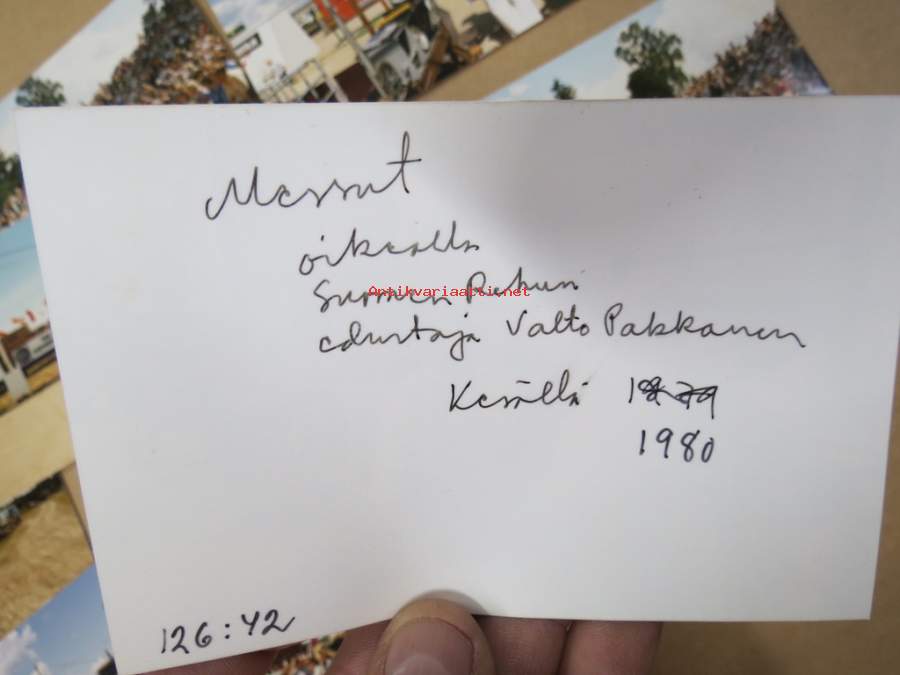 Messut
oikealla
Suomen Rehun
Antikvariaatti.net
edustaja Valto Pakkanen
Kesällä 1979
1980
126:42